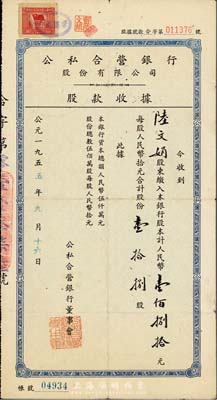 股據號數合字第011376號
公私合營銀行
股份有限公司
股款收據
今收到
陸文娟股東繳入本銀行股本計人民幣壹佰捌拾元
每股人民幣拾元合計股份壹拾捌股
此據
本銀行資本總額人民幣伍仟萬元
股份總數伍佰萬股每股人民幣拾元
公私合營銀行董事會
公元一九五五年九月十六日
帳號 04934